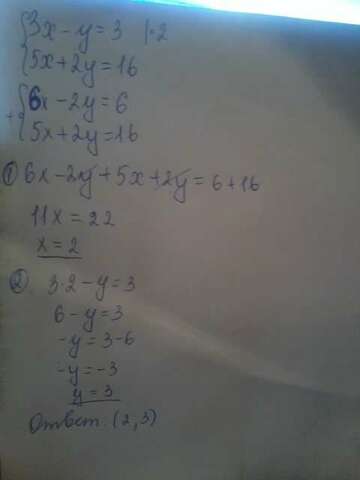 3x - y = 3 |·2
5x + 2y = 16
6x - 2y = 6
+
5x + 2y = 16
① 6x - 2y + 5x + 2y = 6 + 16
11x = 22
x = 2
② 3·2 - y = 3
6 - y = 3
-y = 3 - 6
-y = -3
y = 3
Ответ. (2, 3)